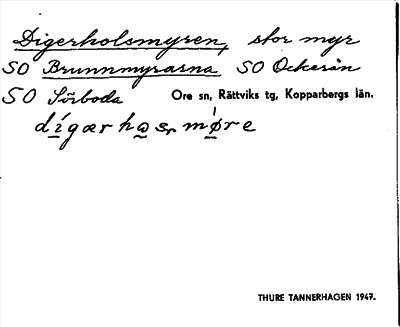 Digerholsmyren, stor myr
SO Brunnmyrarna SO Ockerån
SO Sörboda Ore sn, Rättviks tg, Kopparbergs län.
dígær hɑsr møre
THURE TANNERHAGEN 1947.